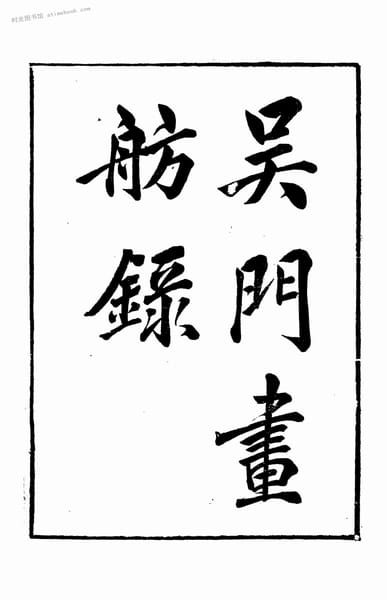 时光图书馆 atimebook.com
吴門畫
舫錄